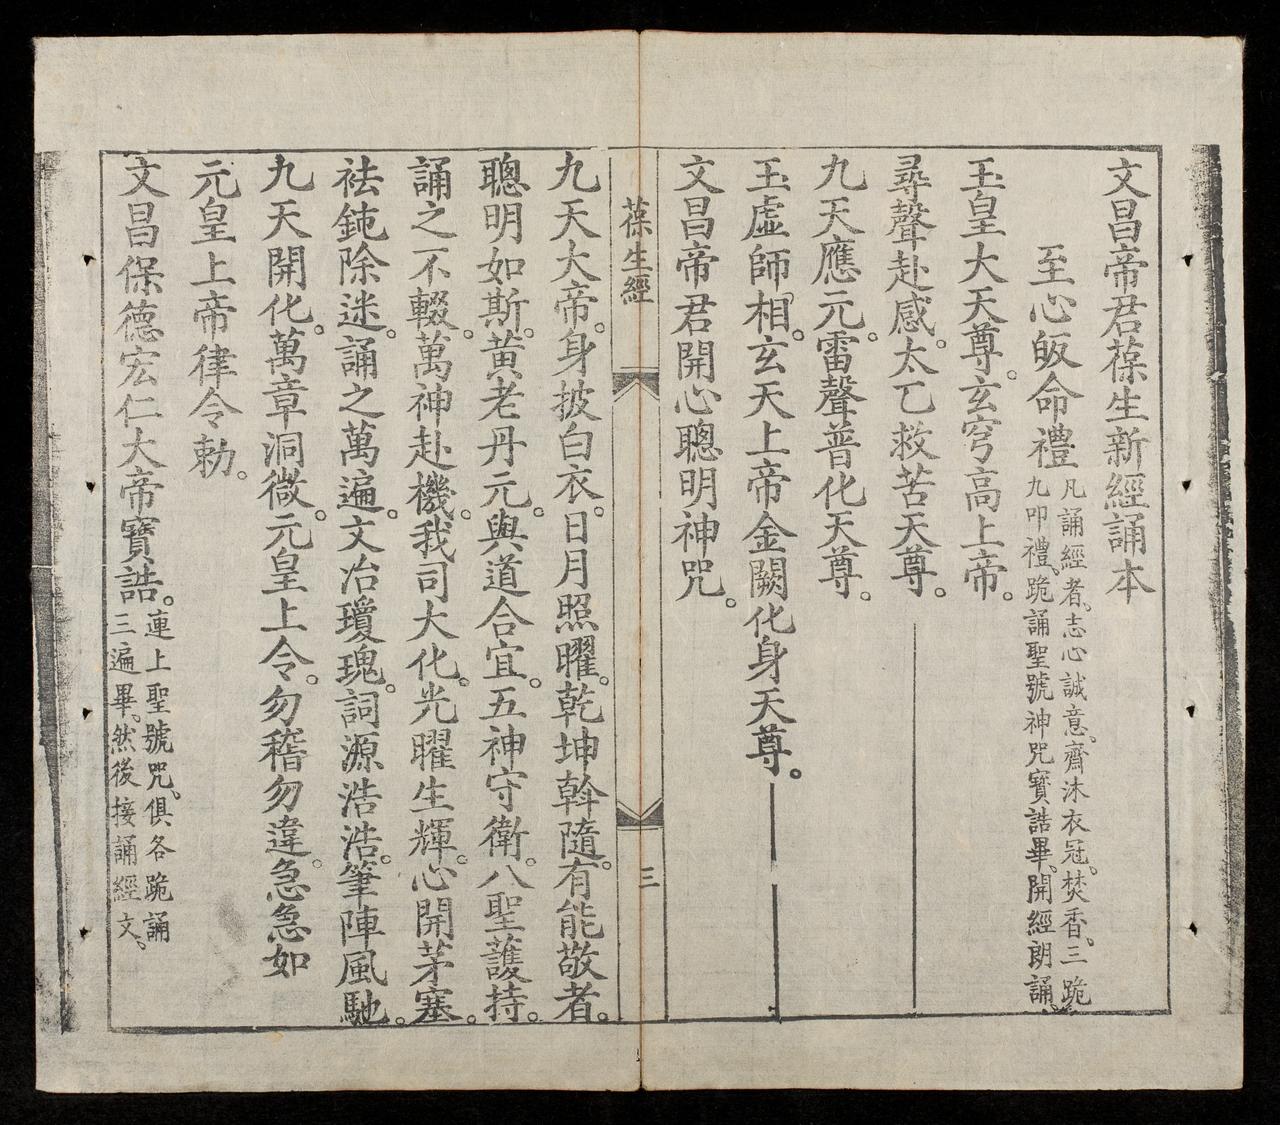 文昌帝君葆生新經誦本
至心皈命禮
凡誦經者、志心誠意、齋沐衣冠、焚香、三跪
九叩禮、跪誦聖號神咒寶誥畢、開經朗誦、
玉皇大天尊。玄穹高上帝。
尋聲赴感。太乙救苦天尊。
九天應元。雷聲普化天尊。
玉虛師相。玄天上帝金闕化身天尊。
文昌帝君開心聰明神咒。
葆生經
三
九天大帝。身披白衣。日月照曜。乾坤斡隨。有能敬者。
聰明如斯。黄老丹元。與道合宜。五神守衛。八聖護持。
誦之不輟。萬神赴機。我司大化。光曜生輝。心開茅塞。
袪鈍除迷。誦之萬遍。文冶瓊瑰。詞源浩浩。筆陣風馳。
九天開化。萬章洞微。元皇上令。勿稽勿違。急急如
元皇上帝律令勅。
文昌保德宏仁大帝寶誥。
連上聖號咒、俱各跪誦
三遍畢、然後接誦經文、